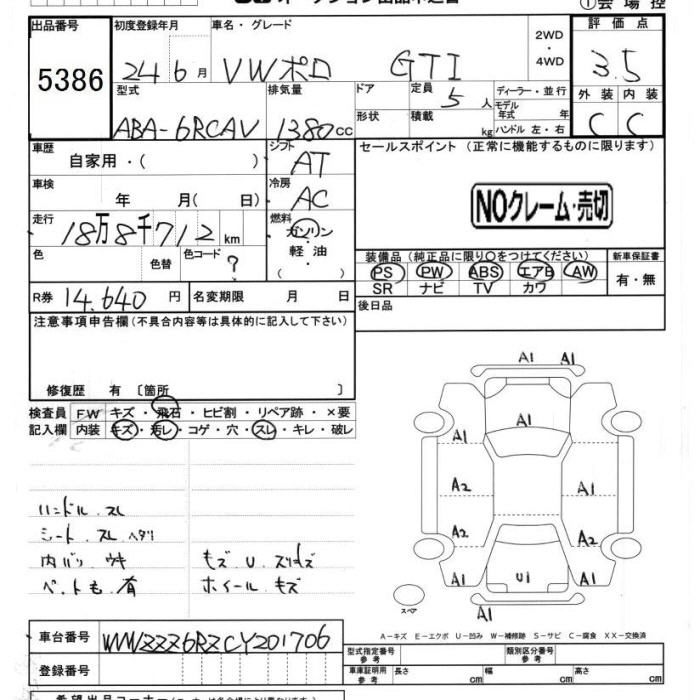 ①会場控
出品番号
5386
初度登録年月
24 6 月
車名・グレード
VWポロ GTI
2WD
・
4WD
評価点
3.5
型式
ABA-6RCAV
排気量
1380cc
ドア
形状
定員
5 人
積載
kg
ディーラー・並行
モデル
年式 年
ハンドル 左・右
外装 内装
C C
車歴
自家用・( )
シフト
AT
セールスポイント(正常に機能するものに限ります)
NOクレーム・売切
車検
年 月( 日)
冷房
AC
走行
18万8千712 km
燃料
ガソリン
・軽油
・( )
色
色替
色コード
?
装備品(純正品に限り○をつけてください)
PS PW ABS エアB AW
SR ナビ TV カワ
新車保証書
有・無
R券 14.640 円
名変期限 月 日
後日品
注意事項申告欄(不具合内容等は具体的に記入して下さい)
修復歴 有〔箇所 〕
検査員
記入欄
FW キズ・飛石・ヒビ割・リペア跡・×要
内装 キズ・汚レ・コゲ・穴・スレ・キレ・破レ
ハンドル.スレ
シート.スレ ヘタリ
内バリ ウキ
ペットも 有
キズ U
ホイール キズ
A1 A1
A1
A1 A1
A2 A1
A2 A2
A1 U1 A1
A1
スペア
A-キズ E-エクボ U-凹み W-補修跡 S-サビ C-腐食 XX-交換済
車台番号
WVWZZZ6RZCY201706
登録番号
型式指定番号
参考
類別区分番号
参考
車庫証明用
参考
長さ cm
幅 cm
高さ cm